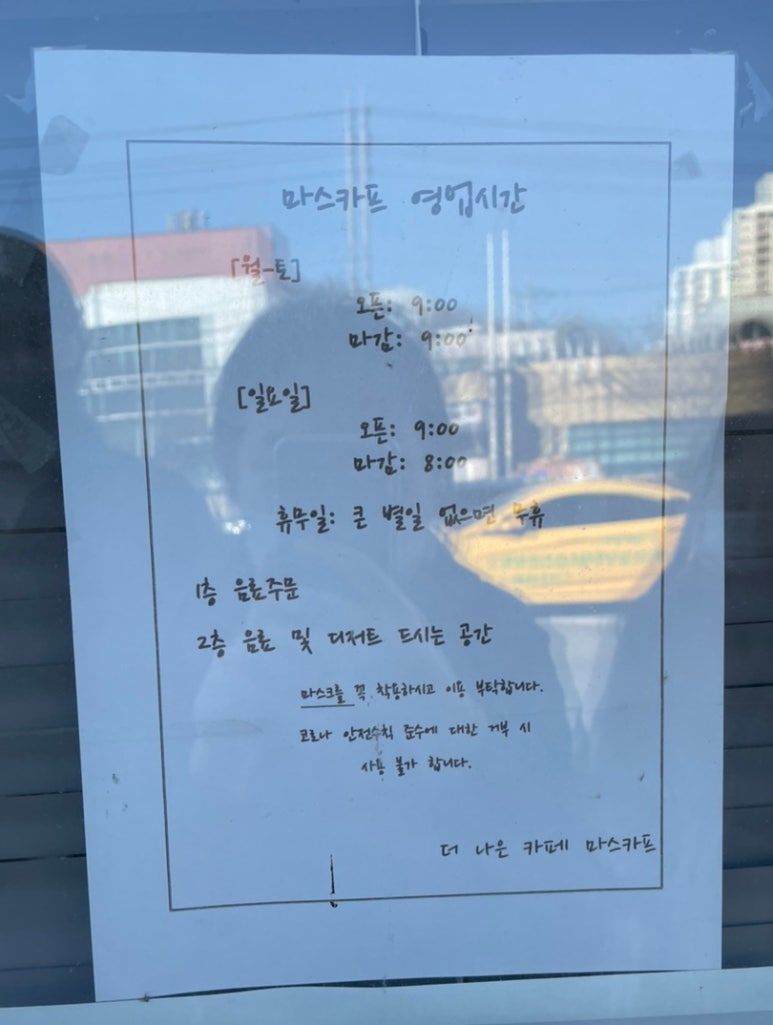 마스카프 영업시간
[월-토]
오픈: 9:00
마감: 9:00
[일요일]
오픈: 9:00
마감: 8:00
휴무일: 큰 별일 없으면 무휴
1층 음료주문
2층 음료 및 디저트 드시는 공간
마스크를 꼭 착용하시고 이용 부탁합니다.
코로나 안전수칙 준수에 대한 거부 시
사용 불가 합니다.
더 나은 카페 마스카프